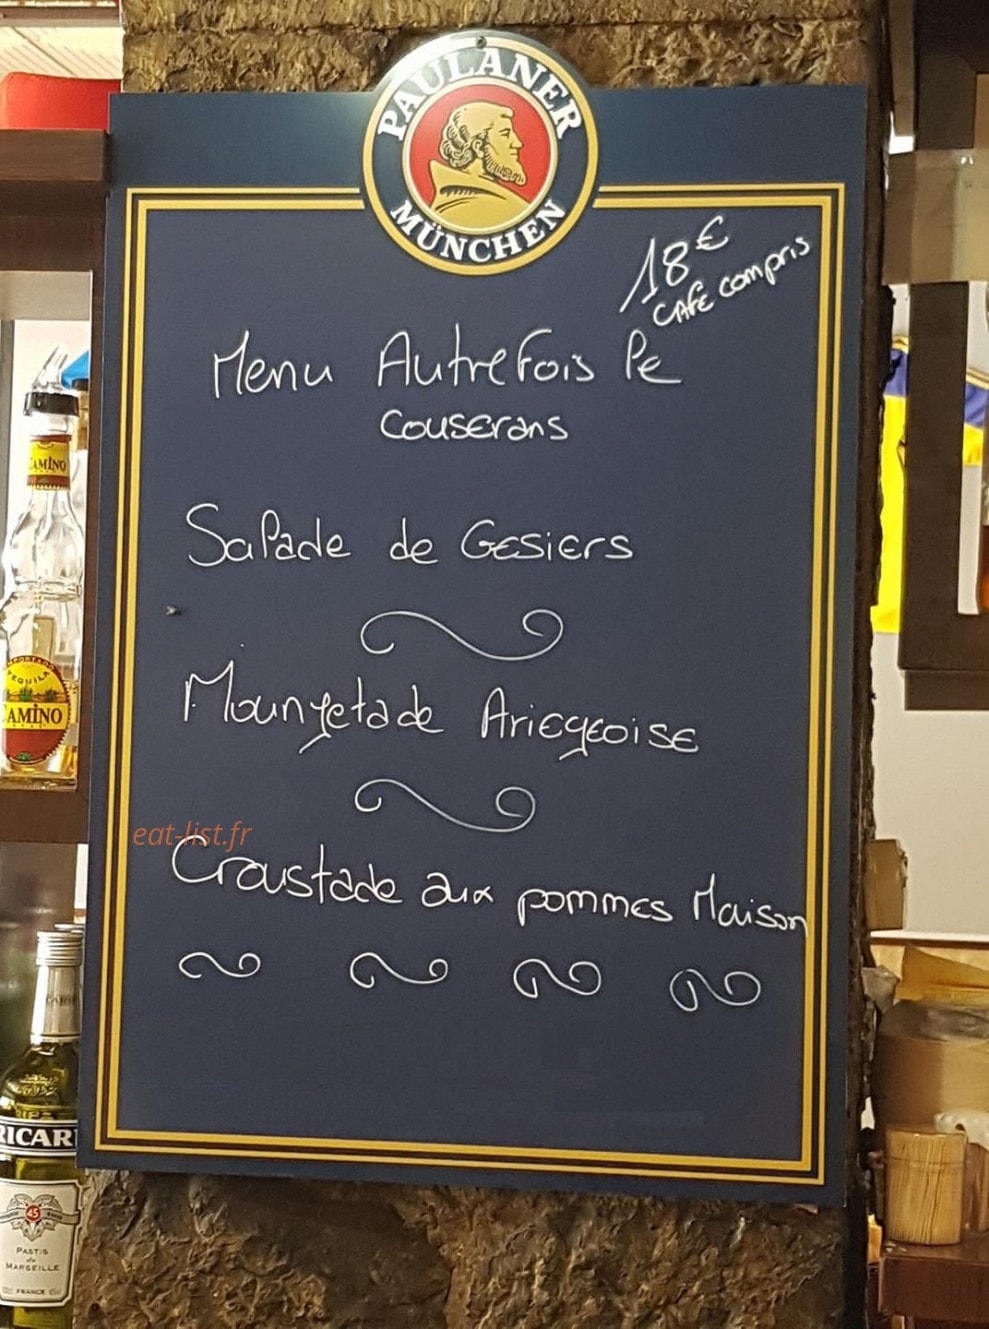 PAULANER
MÜNCHEN
18€
CAFÉ compris
Menu Autrefois Le
Couserans
Salade de Gesiers
Mounjetade Ariegeoise
eat-list.fr
Croustade aux pommes Maison
CAMINO
IMPORTADO
TEQUILA
CAMINO
RICAR
45
PASTIS
de
MARSEILLE
FRANCE